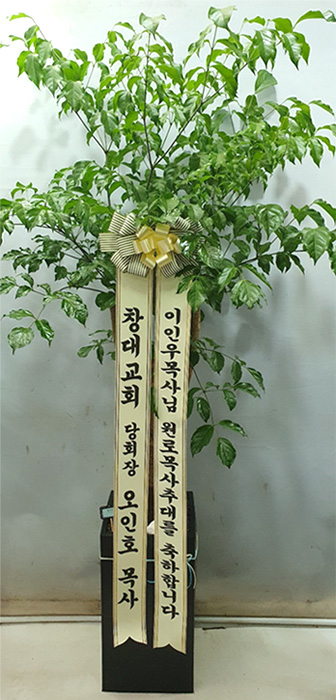 이인우목사님 원로목사추대를 축하합니다
창대교회 당회장 오인호 목사